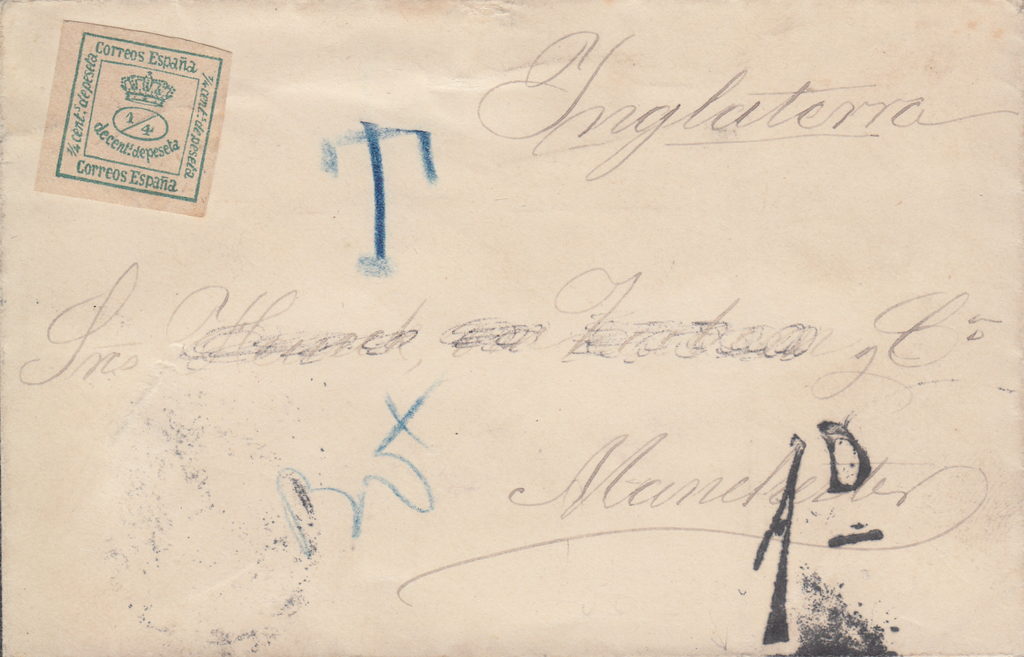 Correos España
¼ cent.s de peseta
¼ cent.s de peseta
1/4
de cent.s de peseta
Correos España
T
Inglaterra
Sres
y Cª
Box
Manchester
1D